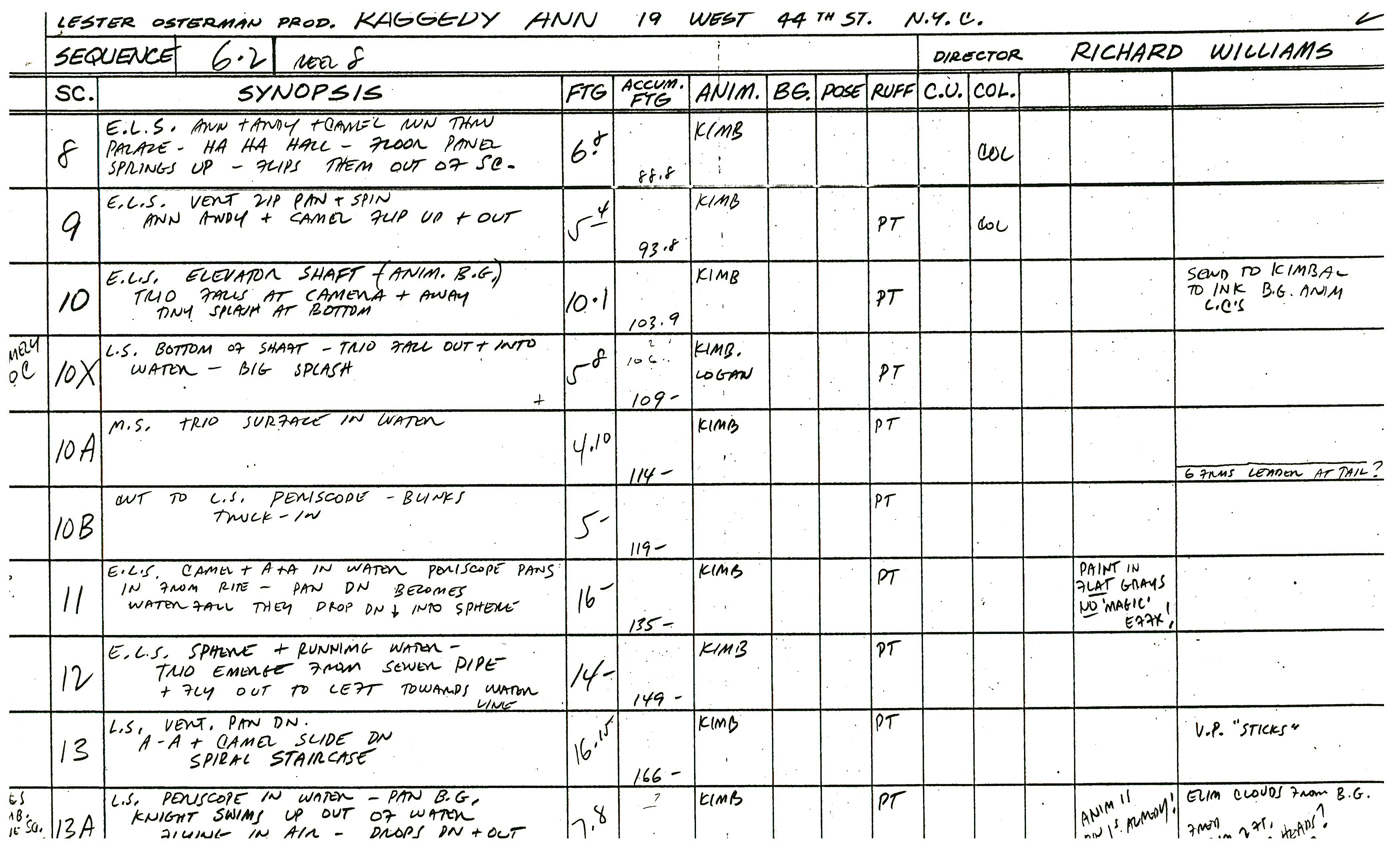 LESTER OSTERMAN PROD. RAGGEDY ANN 19 WEST 44TH ST. N.Y.C.
SEQUENCE 6.2 REEL 8 DIRECTOR RICHARD WILLIAMS
SC. SYNOPSIS FTG ACCUM. FTG ANIM. BG. POSE RUFF C.U. COL.
8 E.L.S. ANN + ANDY + CAMEL RUN THRU
PALACE - HA HA HALL - FLOOR PANEL
SPRINGS UP - FLIPS THEM OUT OF SC.
6.8 88.8 KIMB COL
9 E.L.S. VERT ZIP PAN + SPIN
ANN ANDY + CAMEL FLIP UP + OUT
5 4 93.8 KIMB PT COL
10 E.L.S. ELEVATOR SHAFT (ANIM. B.G.)
TRIO FALLS AT CAMERA + AWAY
TINY SPLASH AT BOTTOM
10.1 103.9 KIMB PT
SEND TO KIMBAL
TO INK B.G. ANIM
10X L.S. BOTTOM OF SHAFT - TRIO FALL OUT + INTO
WATER - BIG SPLASH
5 8 109- KIMB.
LOGAN PT
10A M.S. TRIO SURFACE IN WATER
4.10 114- KIMB PT
6 FRMS LEADER AT TAIL?
10B CUT TO L.S. PERISCOPE - BLINKS
TRUCK-IN
5- 119- PT
11 E.L.S. CAMEL + A+A IN WATER PERISCOPE PANS
IN FROM RITE - PAN DN BECOMES
WATERFALL THEY DROP DN ↓ INTO SPHERE
16- 135- KIMB PT
PAINT IN
FLAT GRAYS
NO 'MAGIC'
EFFX!
12 E.L.S. SPHERE + RUNNING WATER -
TRIO EMERGE FROM SEWER PIPE
+ FLY OUT TO LEFT TOWARDS WATER
LINE
14- 149- KIMB PT
13 L.S. VERT. PAN DN.
A-A + CAMEL SLIDE DN
SPIRAL STAIRCASE
16.15 166- KIMB PT
V.P. "STICKS"
13A L.S. PERISCOPE IN WATER - PAN B.G.
KNIGHT SWIMS UP OUT OF WATER
IN AIR - DROPS DN + OUT
7.8 ? KIMB PT
ANIM IS
ON 1'S ALREADY!
ELIM CLOUDS FROM B.G.
HEADS?